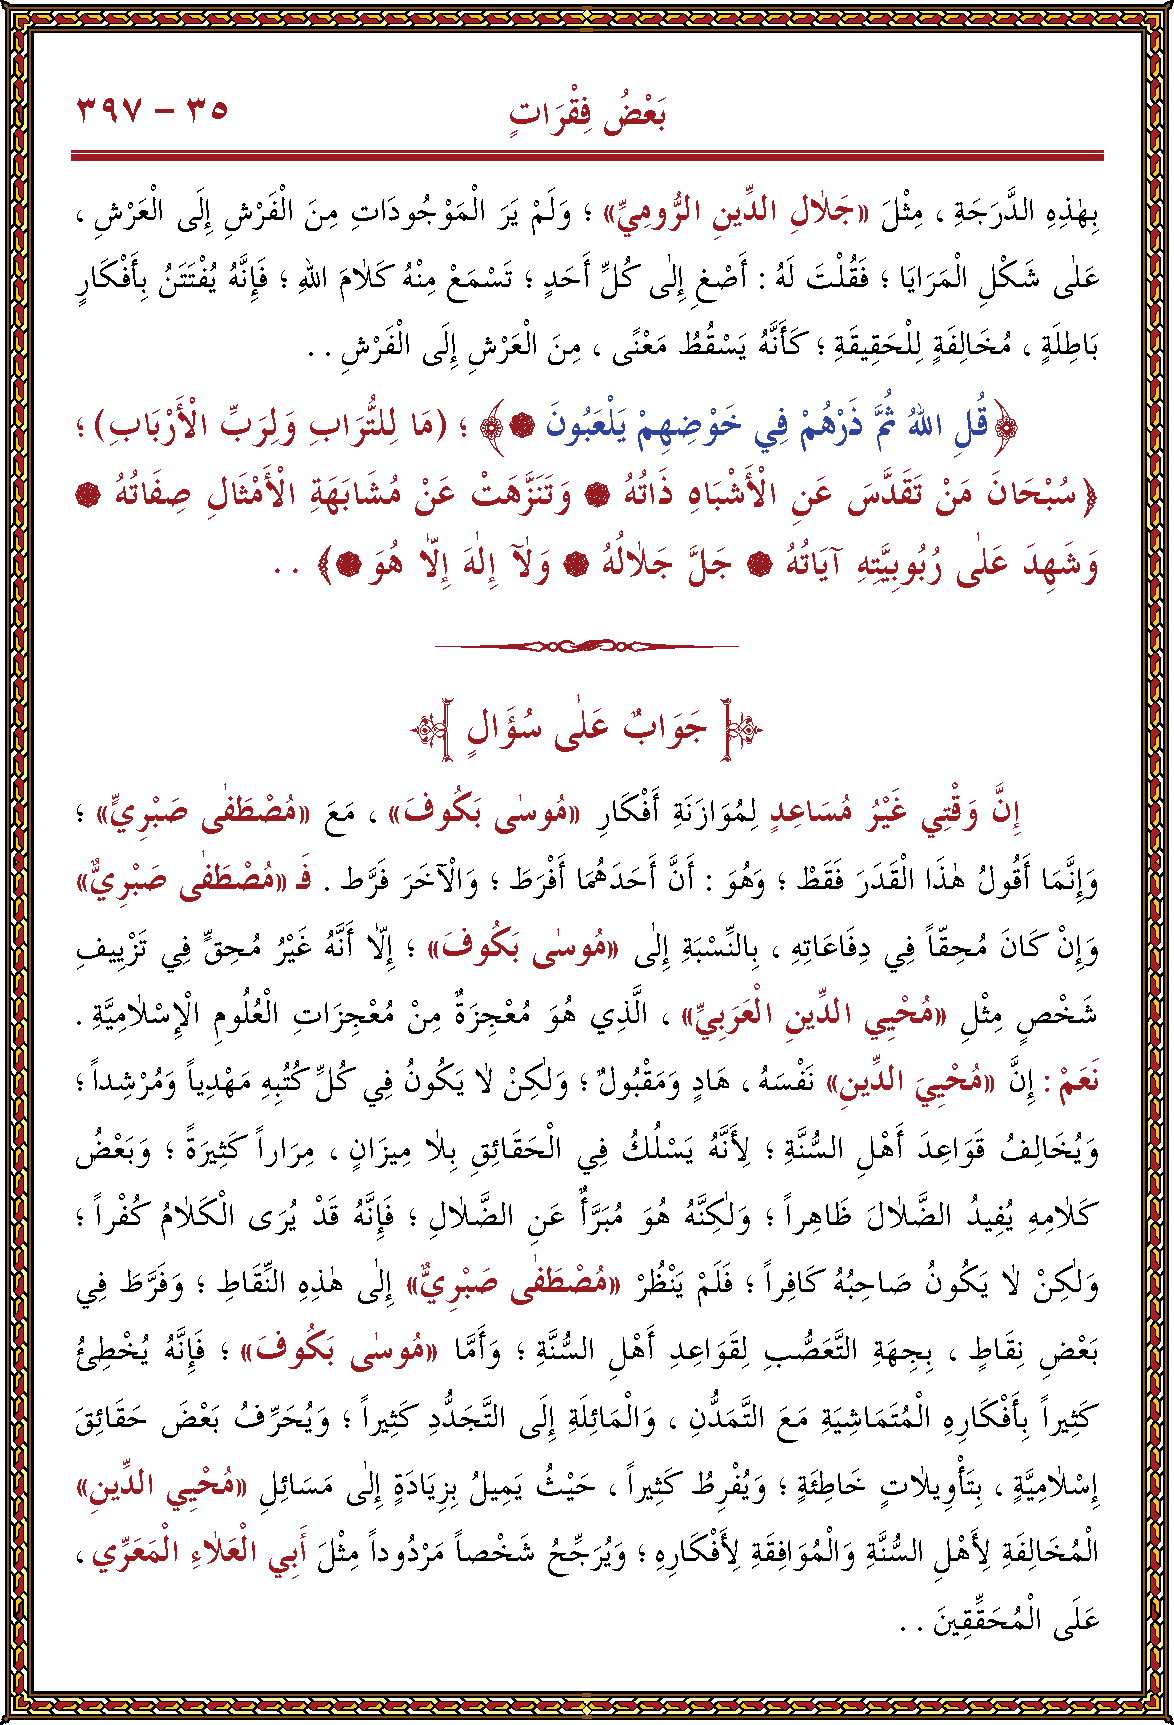 بَعْضُ فِقْرَاتٍ ٣٥ – ٣٩٧
بِهٰذِهِ الدَّرَجَةِ ، مِثْلَ «جَلَالِ الدِّينِ الرُّومِيِّ» ؛ وَلَمْ يَرَ الْمَوْجُودَاتِ مِنَ الْفَرْشِ إِلَى الْعَرْشِ ،
عَلٰى شَكْلِ الْمَرَايَا ؛ فَقُلْتُ لَهُ : أَصْغِ إِلٰى كُلِّ أَحَدٍ ؛ تَسْمَعْ مِنْهُ كَلَامَ اللهِ ؛ فَإِنَّهُ يُفْتَتَنُ بِأَفْكَارٍ
بَاطِلَةٍ ، مُخَالِفَةٍ لِلْحَقِيقَةِ ؛ كَأَنَّهُ يَسْقُطُ مَعْنًى ، مِنَ الْعَرْشِ إِلَى الْفَرْشِ . .
﴿قُلِ اللهُ ثُمَّ ذَرْهُمْ فِي خَوْضِهِمْ يَلْعَبُونَ ۝﴾ ؛ (مَا لِلتُّرَابِ وَلِرَبِّ الْأَرْبَابِ) ؛
﴿سُبْحَانَ مَنْ تَقَدَّسَ عَنِ الْأَشْبَاهِ ذَاتُهُ ۝ وَتَنَزَّهَتْ عَنْ مُشَابَهَةِ الْأَمْثَالِ صِفَاتُهُ ۝
وَشَهِدَ عَلٰى رُبُوبِيَّتِهِ آيَاتُهُ ۝ جَلَّ جَلَالُهُ ۝ وَلَٓا إِلٰهَ إِلَّا هُوَ ۝﴾ . .
جَوَابٌ عَلٰى سُؤَالٍ
إِنَّ وَقْتِي غَيْرُ مُسَاعِدٍ لِمُوَازَنَةِ أَفْكَارِ «مُوسٰى بَكُوفَ» ، مَعَ «مُصْطَفٰى صَبْرِيٍّ» ؛
وَإِنَّمَا أَقُولُ هٰذَا الْقَدَرَ فَقَطْ ؛ وَهُوَ : أَنَّ أَحَدَهُمَا أَفْرَطَ ؛ وَالْآخَرَ فَرَّطَ . فَـ «مُصْطَفٰى صَبْرِيٌّ»
وَإِنْ كَانَ مُحِقّاً فِي دِفَاعَاتِهِ ، بِالنِّسْبَةِ إِلٰى «مُوسٰى بَكُوفَ» ؛ إِلَّا أَنَّهُ غَيْرُ مُحِقٍّ فِي تَزْيِيفِ
شَخْصٍ مِثْلِ «مُحْيِي الدِّينِ الْعَرَبِيِّ» ، الَّذِي هُوَ مُعْجِزَةٌ مِنْ مُعْجِزَاتِ الْعُلُومِ الْإِسْلَامِيَّةِ .
نَعَمْ : إِنَّ «مُحْيِيَ الدِّينِ» نَفْسَهُ ، هَادٍ وَمَقْبُولٌ ؛ وَلٰكِنْ لَا يَكُونُ فِي كُلِّ كُتُبِهِ مَهْدِياًّ وَمُرْشِداً ؛
وَيُخَالِفُ قَوَاعِدَ أَهْلِ السُّنَّةِ ؛ لِأَنَّهُ يَسْلُكُ فِي الْحَقَائِقِ بِلَا مِيزَانٍ ، مِرَاراً كَثِيرَةً ؛ وَبَعْضُ
كَلَامِهِ يُفِيدُ الضَّلَالَ ظَاهِراً ؛ وَلٰكِنَّهُ هُوَ مُبَرَّأٌ عَنِ الضَّلَالِ ؛ فَإِنَّهُ قَدْ يُرَى الْكَلَامُ كُفْراً ؛
وَلٰكِنْ لَا يَكُونُ صَاحِبُهُ كَافِراً ؛ فَلَمْ يَنْظُرْ «مُصْطَفٰى صَبْرِيٌّ» إِلٰى هٰذِهِ النِّقَاطِ ؛ وَفَرَّطَ فِي
بَعْضِ نِقَاطٍ ، بِجِهَةِ التَّعَصُّبِ لِقَوَاعِدِ أَهْلِ السُّنَّةِ ؛ وَأَمَّا «مُوسٰى بَكُوفَ» ؛ فَإِنَّهُ يُخْطِئُ
كَثِيراً بِأَفْكَارِهِ الْمُتَمَاشِيَةِ مَعَ التَّمَدُّنِ ، وَالْمَائِلَةِ إِلَى التَّجَدُّدِ كَثِيراً ؛ وَيُحَرِّفُ بَعْضَ حَقَائِقَ
إِسْلَامِيَّةٍ ، بِتَأْوِيلَاتٍ خَاطِئَةٍ ؛ وَيُفْرِطُ كَثِيراً ، حَيْثُ يَمِيلُ بِزِيَادَةٍ إِلٰى مَسَائِلِ «مُحْيِي الدِّينِ»
الْمُخَالِفَةِ لِأَهْلِ السُّنَّةِ وَالْمُوَافِقَةِ لِأَفْكَارِهِ ؛ وَيُرَجِّحُ شَخْصاً مَرْدُوداً مِثْلَ أَبِي الْعَلَاءِ الْمَعَرِّي ،
عَلَى الْمُحَقِّقِينَ . .